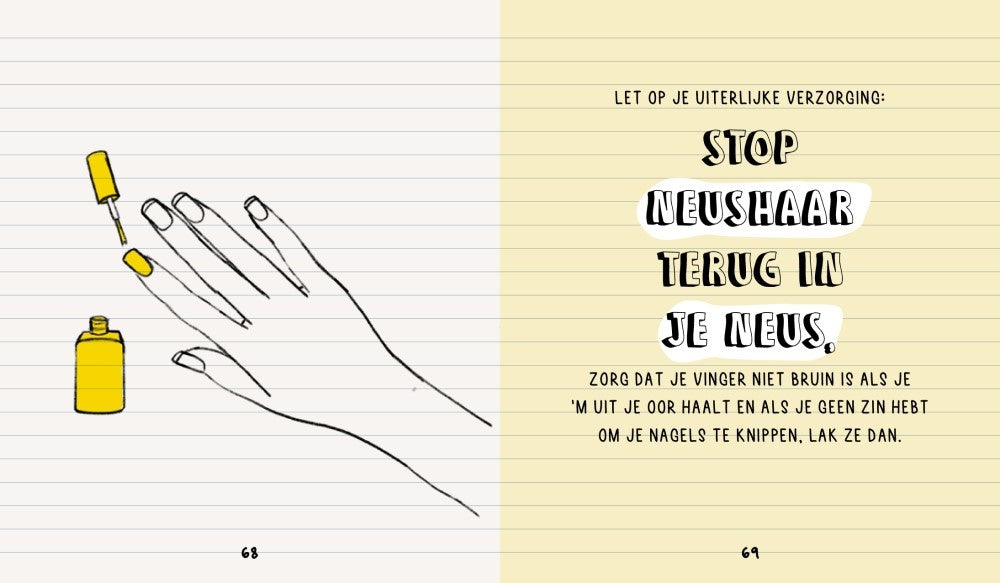 LET OP JE UITERLIJKE VERZORGING:
STOP
NEUSHAAR
TERUG IN
JE NEUS,
ZORG DAT JE VINGER NIET BRUIN IS ALS JE
'M UIT JE OOR HAALT EN ALS JE GEEN ZIN HEBT
OM JE NAGELS TE KNIPPEN, LAK ZE DAN.
68
69